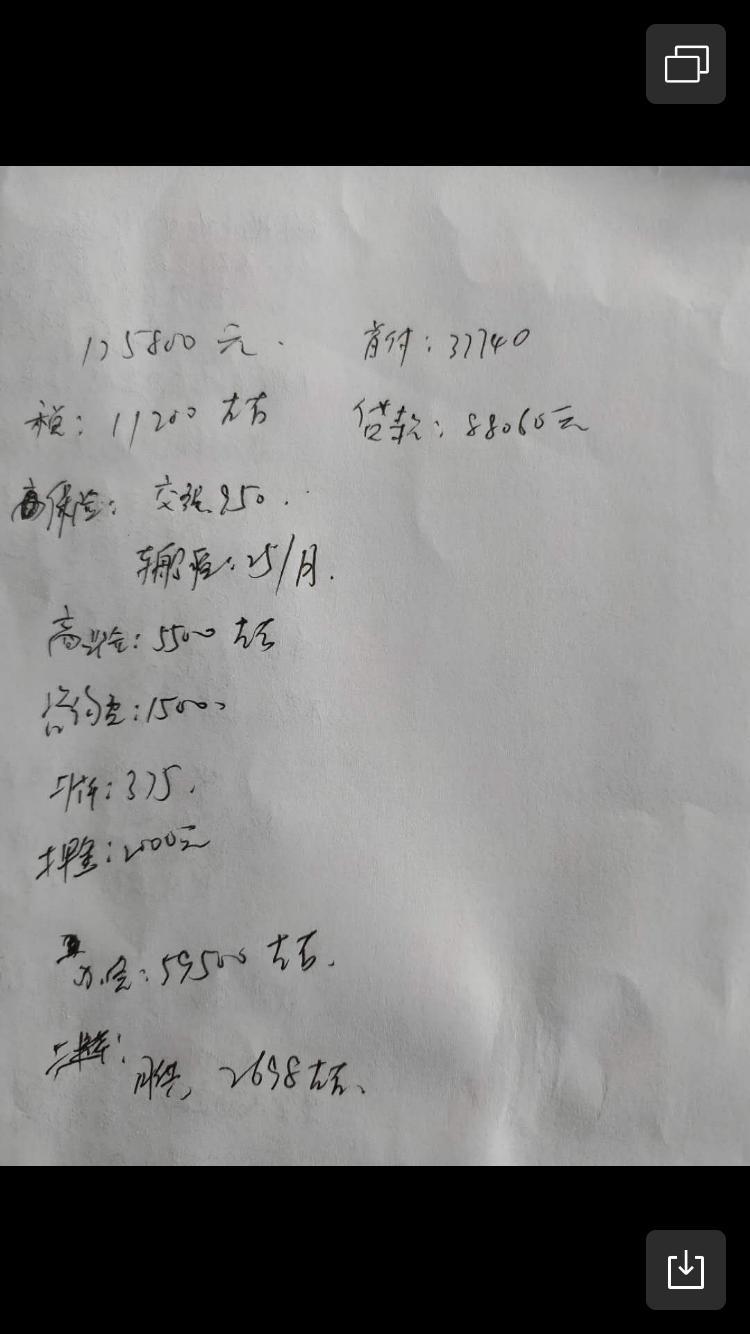 125800元. 首付:37740
税:11200左右 贷款:88060元
保险:交强950.
车船税:25/月.
商业险:5500左右
1500
上牌:375.
押金:2000元
:59500左右.
月供,2698左右、